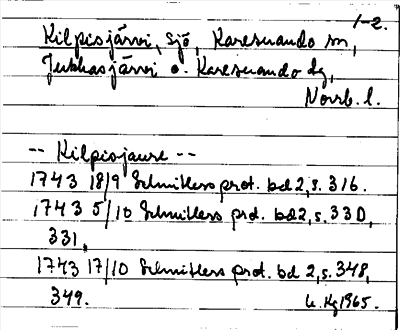 1-2.
Kilpisjärvi, sjö, Karesuando sn,
Jukkasjärvi o. Karesuando dg,
Norrb. l.
-- Kilpisjaure --
1743 18/9 Schnitlers prot. bd 2, s. 316.
1743 5/10 Schnitlers prot. bd 2, s. 330,
331.
1743 17/10 Schnitlers prot. bd 2, s. 348,
349.
1965.